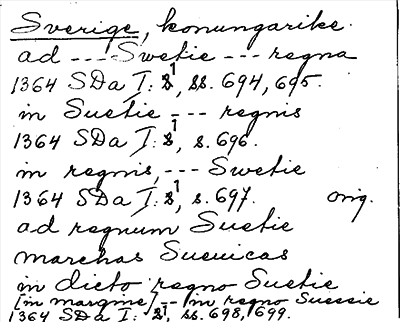 Sverige, konungarike.
ad --- Swetie --- regna
1364 SDa I: 1, ss. 694, 695.
in Suetie --- regnis
1364 SDa I: 1, s. 696.
in regnis, --- Swetie
1364 SDa I: 1, s. 697. orig.
ad regnum Suetie
marchas Sueuicas
in dicto regno Suetie
[in margine] -- in regno Suessie
1364 SDa I: 1, ss. 698, 699.